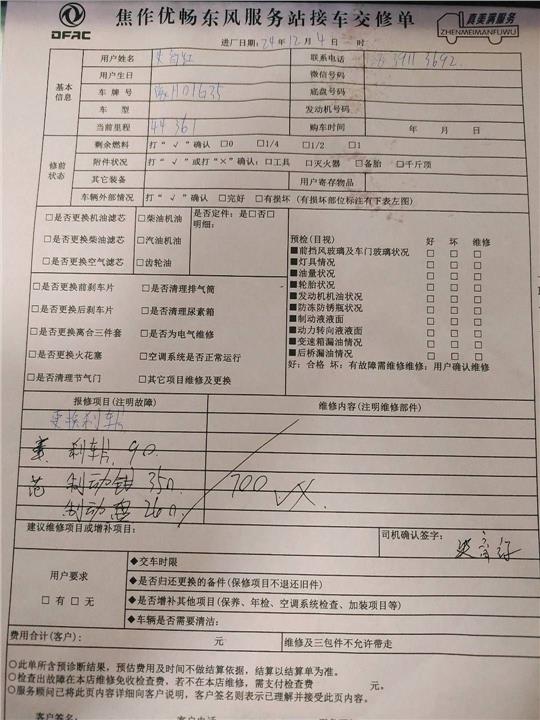 DFAC
焦作优畅东风服务站接车交修单
真美满服务
ZHENMEIMANFUWU
进厂日期：24年12月4日 一时
基本信息
用户姓名
联系电话 3911 3692
用户生日
微信号码
车 牌 号 H01G35
底盘号码
车 型
发动机号码
当前里程 44361
购车时间 年 月 日
修前状态
剩余燃料 打“√”确认 □0 □1/4 □1/2 □1
附件状况 打“√”或打“×”确认：□工具 □灭火器 □备胎 □千斤顶
其它装备
用户寄存物品
车辆外部情况 打“√”确认 □完好 □有损坏 (有损坏部位标注有下表左图)
□是否更换机油滤芯 □柴油机油 是否定件：是□否□
明细：
□是否更换柴油滤芯 □汽油机油
□是否更换空气滤芯 □齿轮油
□是否更换前刹车片 □是否清理排气筒
□是否更换后刹车片 □是否清理尿素箱
□是否更换离合三件套 □是否为电气维修
□是否更换火花塞 □空调系统是否正常运行
□是否清理节气门 □其它项目维修及更换
预检(目视) 好 坏 维修
■前挡风玻璃及车门玻璃状况 □ □ □
■灯具情况 □ □ □
■油量状况 □ □ □
■轮胎状况 □ □ □
■发动机机油状况 □ □ □
■防冻防锈瓶状况 □ □ □
■制动液液面 □ □ □
■动力转向液液面 □ □ □
■变速箱漏油情况 □ □ □
■后桥漏油情况 □ □ □
好：合格 坏：有故障需维修维修：用户确认维修
报修项目(注明故障)
维修内容(注明维修部件)
更换刹车片
刹车片 90
范 制动钳 350
700
制动盘 260
建议维修项目或增补项目：
司机确认签字：
用户要求
□有 □无
◆交车时限
◆是否归还更换的备件(保修项目不退还旧件)
◆是否增补其他项目(保养、年检、空调系统检查、加装项目等)
◆车辆是否需要清洁：
费用合计(客户)： 元
维修及三包件不允许带走
○此单所含预诊断结果，预估费用及时间不做结算依据，结算以结算单为准。
○检查出故障在本店维修免收检查费，若不在本店维修，需支付检查费 元。
○服务顾问已将此页内容详细向客户说明，客户签名则表示已理解并接受此页内容。
客户签名：
客户电话